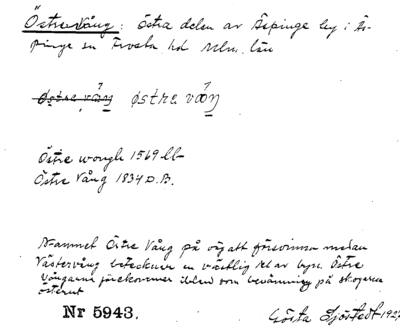 Östrevång: Östra delen av Äspinge by i Äs-
pinge sn Frosta hd Mlm. län
østra våŋ østra våŋ
Östre wongh 1569 ll
Östre Vång 1834 D.B.
Namnet Östre Vång på väg att försvinna medan
Västervång betecknar en västlig del av byn. Östre
Vångarna förekommer ibland som benämning på skogarna
österut
Nr 5943. Gösta Sjöstedt 1927